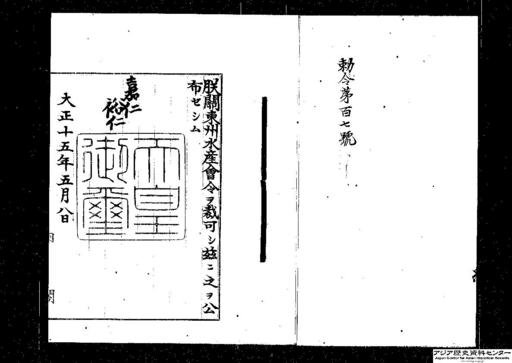 勅令第百七號
朕關東州水産會令ヲ裁可シ茲ニ之ヲ公
布セシム
嘉仁
裕仁
天皇
御璽
大正十五年五月八日
内閣
アジア歴史資料センター
Japan Center for Asian Historical Records